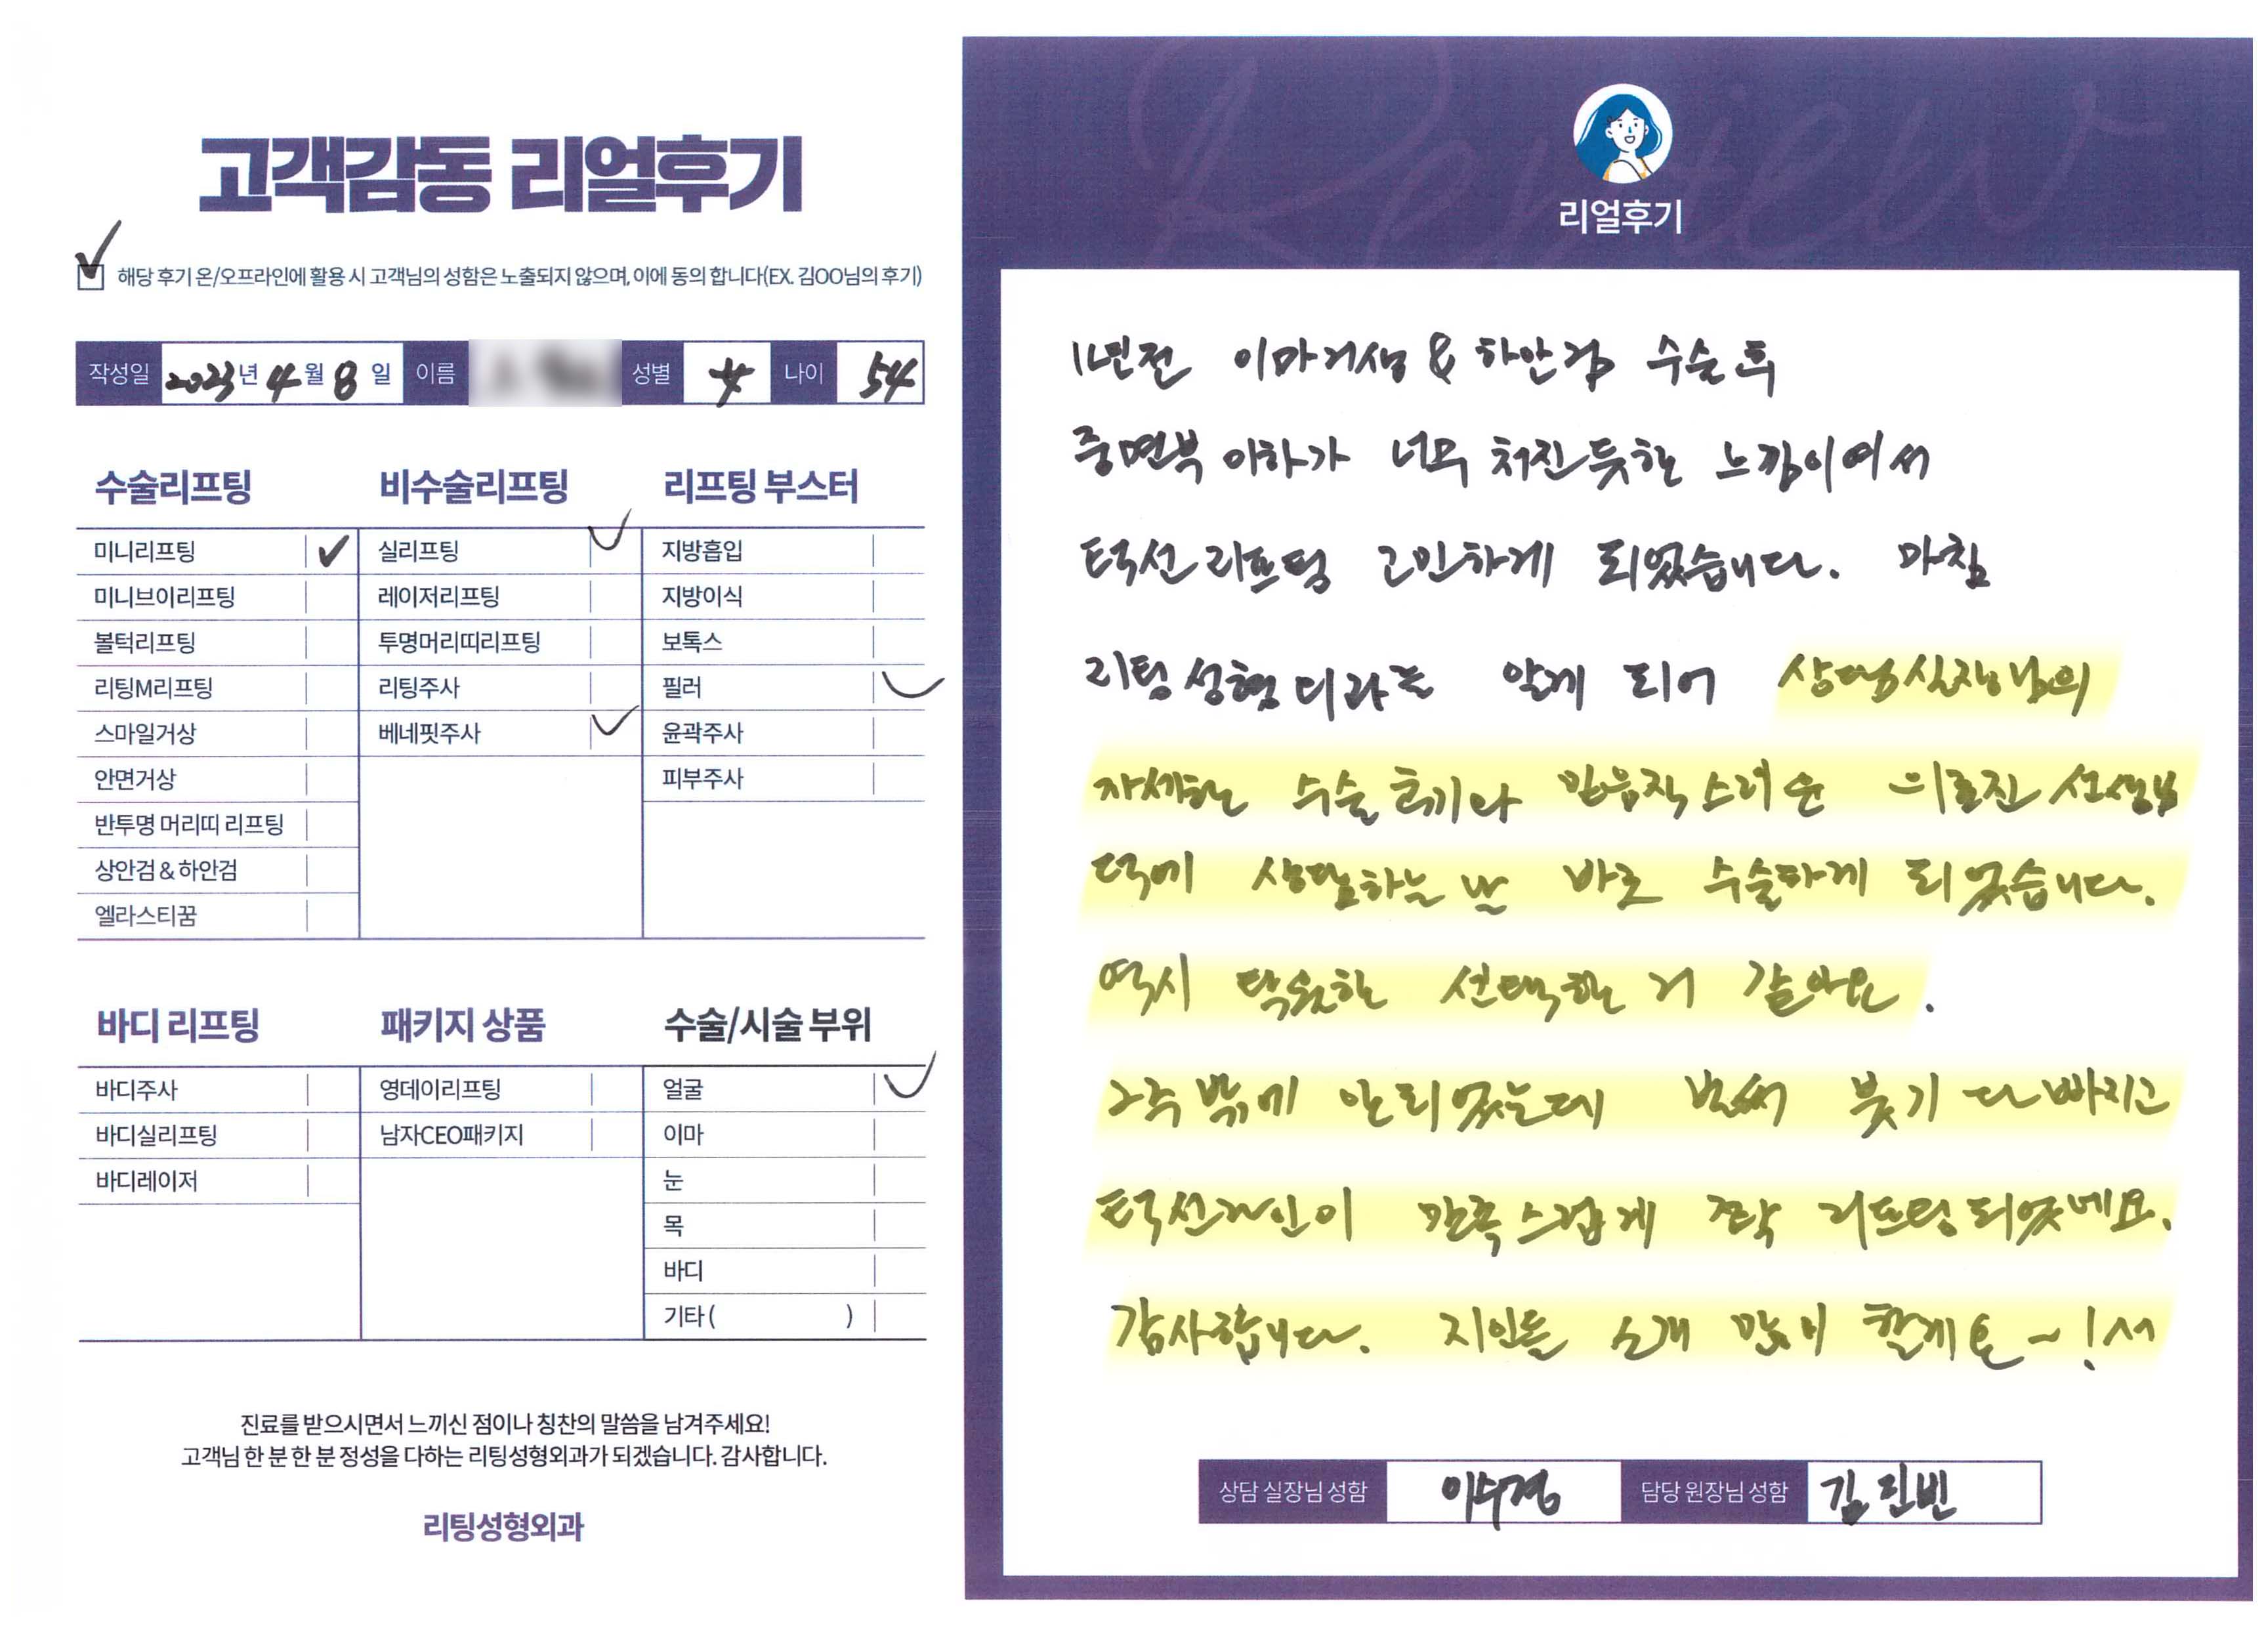 고객감동 리얼후기
해당 후기 온/오프라인에 활용 시 고객님의 성함은 노출되지 않으며, 이에 동의 합니다(EX. 김OO님의 후기)
작성일 2023년 4월 8일 이름 성별 나이 54
수술리프팅
미니리프팅
미니브이리프팅
볼턱리프팅
리팅M리프팅
스마일거상
안면거상
반투명 머리띠 리프팅
상안검 & 하안검
엘라스티꿈
비수술리프팅
실리프팅
레이저리프팅
투명머리띠리프팅
리팅주사
베네핏주사
리프팅 부스터
지방흡입
지방이식
보톡스
필러
윤곽주사
피부주사
바디 리프팅
바디주사
바디실리프팅
바디레이저
패키지 상품
영데이리프팅
남자CEO패키지
수술/시술 부위
얼굴
이마
눈
목
바디
기타( )
진료를 받으시면서 느끼신 점이나 칭찬의 말씀을 남겨주세요!
고객님 한 분 한 분 정성을 다하는 리팅성형외과가 되겠습니다. 감사합니다.
리팅성형외과
Review
리얼후기
1년전 이마거상 & 하안검 수술 후
중면부 이하가 너무 처진듯한 느낌이여서
턱선리프팅 고민하게 되었습니다. 마침
리팅성형 알게 되어 상담실장님의
자세한 수술후기와 믿음직스러운 의료진 선생님
덕에 상담하는 날 바로 수술하게 되었습니다.
역시 탁월한 선택한 거 같아요.
2주밖에 안되었는데 벌써 붓기 다 빠지고
턱선라인이 만족스럽게 쫙 리프팅되었네요.
감사합니다. 지인들 소개 많이 할게요~!
상담 실장님 성함 이수경 담당 원장님 성함 김진빈